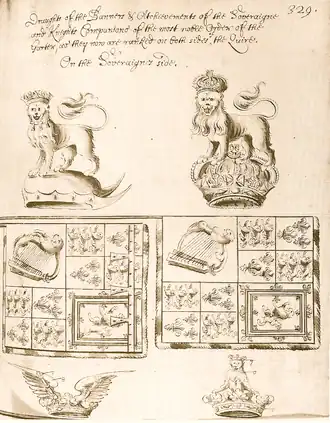 329.
Draughts of the Banners & Atchievements of the Soveraigne
and Knights Companions of the most noble Order of the
Garter, as they now are ranked on both sides the Quire.
On the Soveraigne's side.